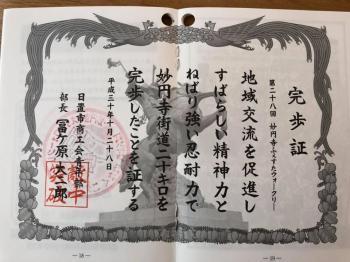 完歩証
第二十八回 妙円寺ふぇすたウォークリー
地域交流を促進し
すばらしい精神力と
ねばり強い忍耐力で
妙円寺街道二十キロを
完歩したことを証する
平成三十年十月二十八日
日置市商工会青年部
部長 冨ケ原 大二郎
— 38 —
— 39 —